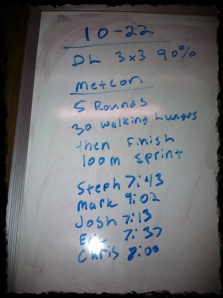 10-22
DL 3x3 90%
Metcon
5 Rounds
30 walking Lunges
then Finish
100m Sprint
Steph 7:43
Mark 9:02
Josh 7:13
7:37
Chris 8:00